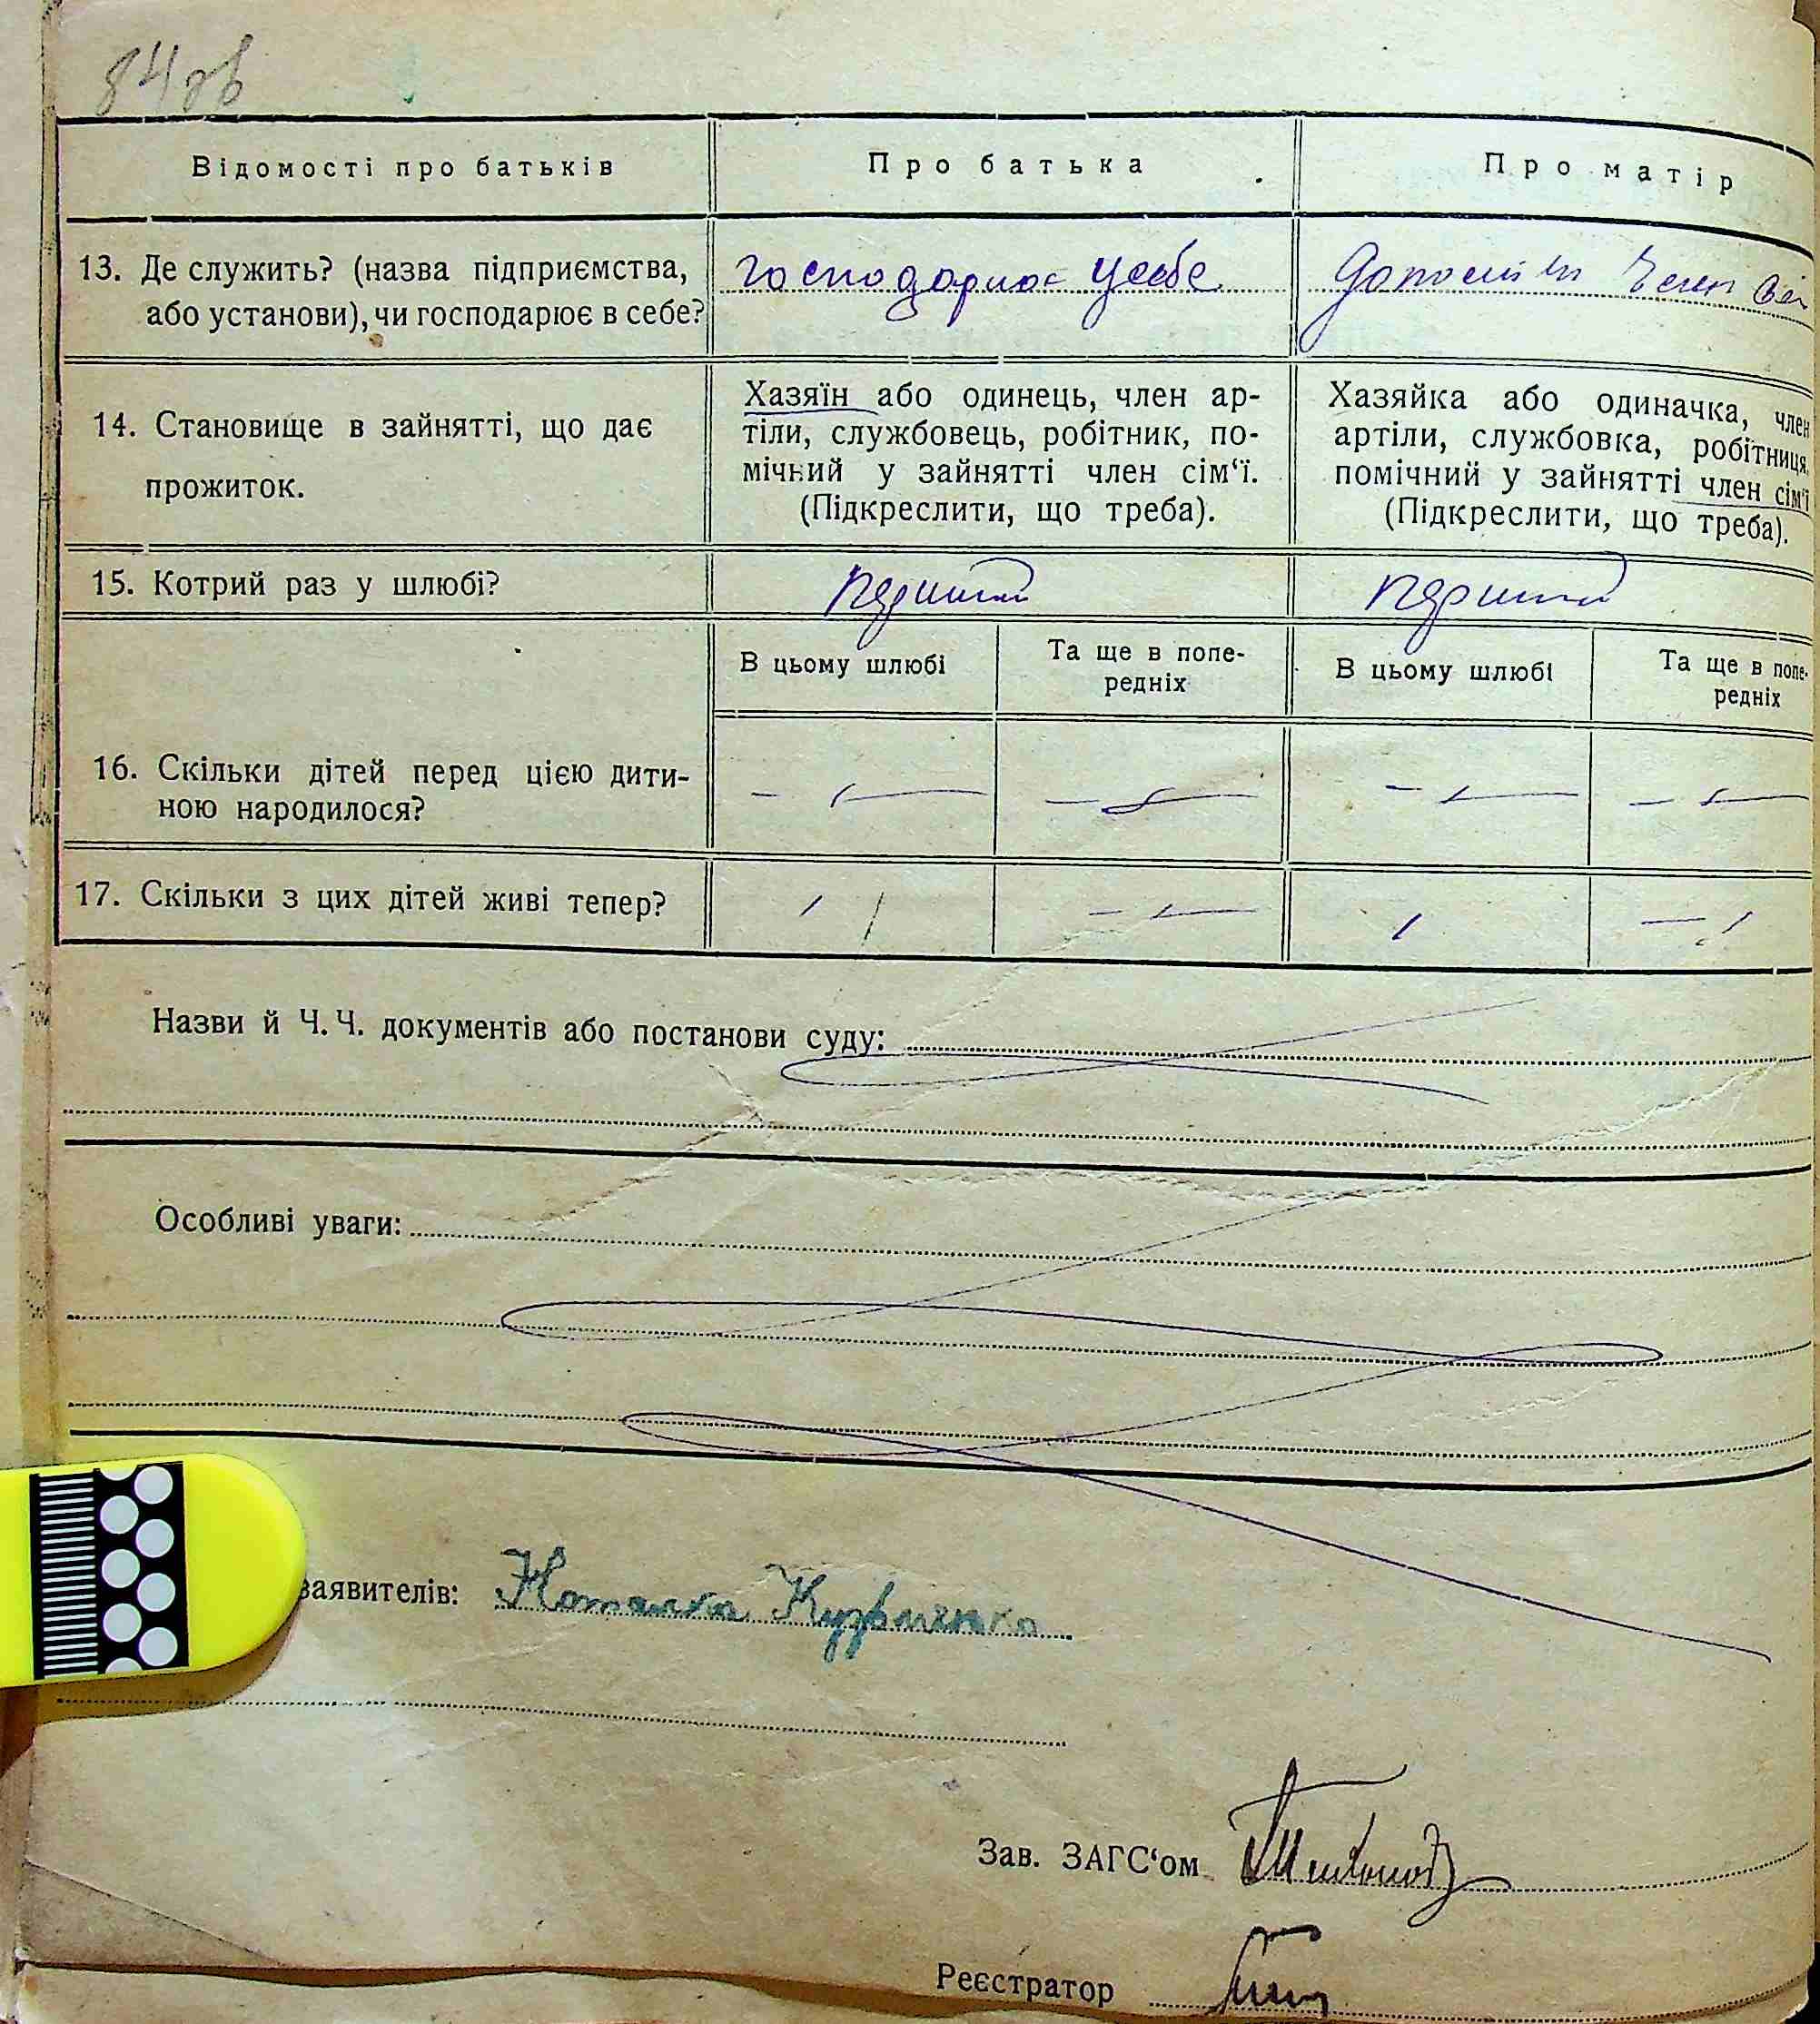 84 об
Відомості про батьків
Про батька
Про матір
13. Де служить? (назва підприємства,
або установи), чи господарює в себе?
господарює усебе
14. Становище в зайнятті, що дає
прожиток.
Хазяїн або одинець, член ар-
тіли, службовець, робітник, по-
мічний у зайнятті член сім‘ї.
(Підкреслити, що треба).
Хазяйка або одиначка, член
артіли, службовка, робітниця,
помічний у зайнятті член сім‘ї
(Підкреслити, що треба).
15. Котрий раз у шлюбі?
перший
перший
В цьому шлюбі
Та ще в попе-
редніх
В цьому шлюбі
Та ще в попе-
редніх
16. Скільки дітей перед цією дити-
ною народилося?
17. Скільки з цих дітей живі тепер?
Назви й Ч. Ч. документів або постанови суду:
Особливі уваги:
заявителів: Наталка Кузьменко
Зав. ЗАГС‘ом
Реєстратор